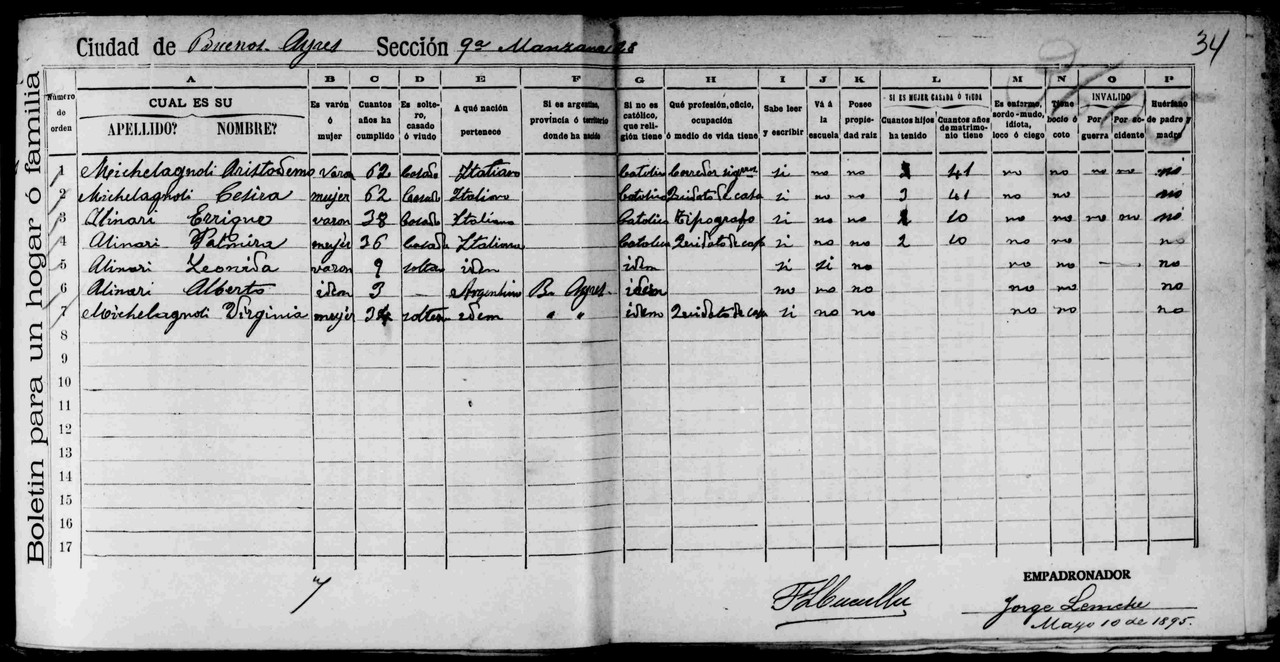 34
Ciudad de Buenos Ayres Sección 9a Manzana
Boletin para un hogar ó familia
A B C D E F G H I J K L M N O P
Número de orden CUAL ES SU APELLIDO? NOMBRE? Es varón ó mujer Cuantos años ha cumplido Es soltero, casado ó viudo A qué nación pertenece Si es argentino, provincia ó territorio donde ha nacido Si no es católico, que religión tiene Qué profesión, oficio, ocupación ó medio de vida tiene, Sabe leer y escribir Vá á la escuela Posee propiedad raiz SI ES MUJER CASADA Ó VIUDA Cuantos hijos ha tenido Cuantos años de matrimonio tiene Es enfermo, sordo-mudo, idiota, loco ó ciego Tiene bocio ó coto INVALIDO Por guerra Por accidente Huérfano de padre y madre
1 Michelagnoli Aristodemo varon 62 Casado Italiano Catolico Corredor si no no 41 no no no no no
2 Michelagnoli Cesira mujer 62 Casado Italiano Catolico Quidato de casa si no no 3 41 no no no
3 Alinari Errique varon 38 Casado Italiano Catolico tipografo si no no 10 no no no no no
4 Alinari Palmira mujer 36 Casada Italiana Catolico Quidato de casa si no no 2 10 no no no
5 Alinari Leonida varon 9 soltero idem idem si si no no no no
6 Alinari Alberto idem 3 — Argentino B. Ayres idem no no no no no no
7 Michelagnoli Virginia mujer soltera idem " " idem Quidato de casa si no no no no no
8
9
10
11
12
13
14
15
16
17
7
EMPADRONADOR
Jorge Lemcke
Mayo 10 de 1895.